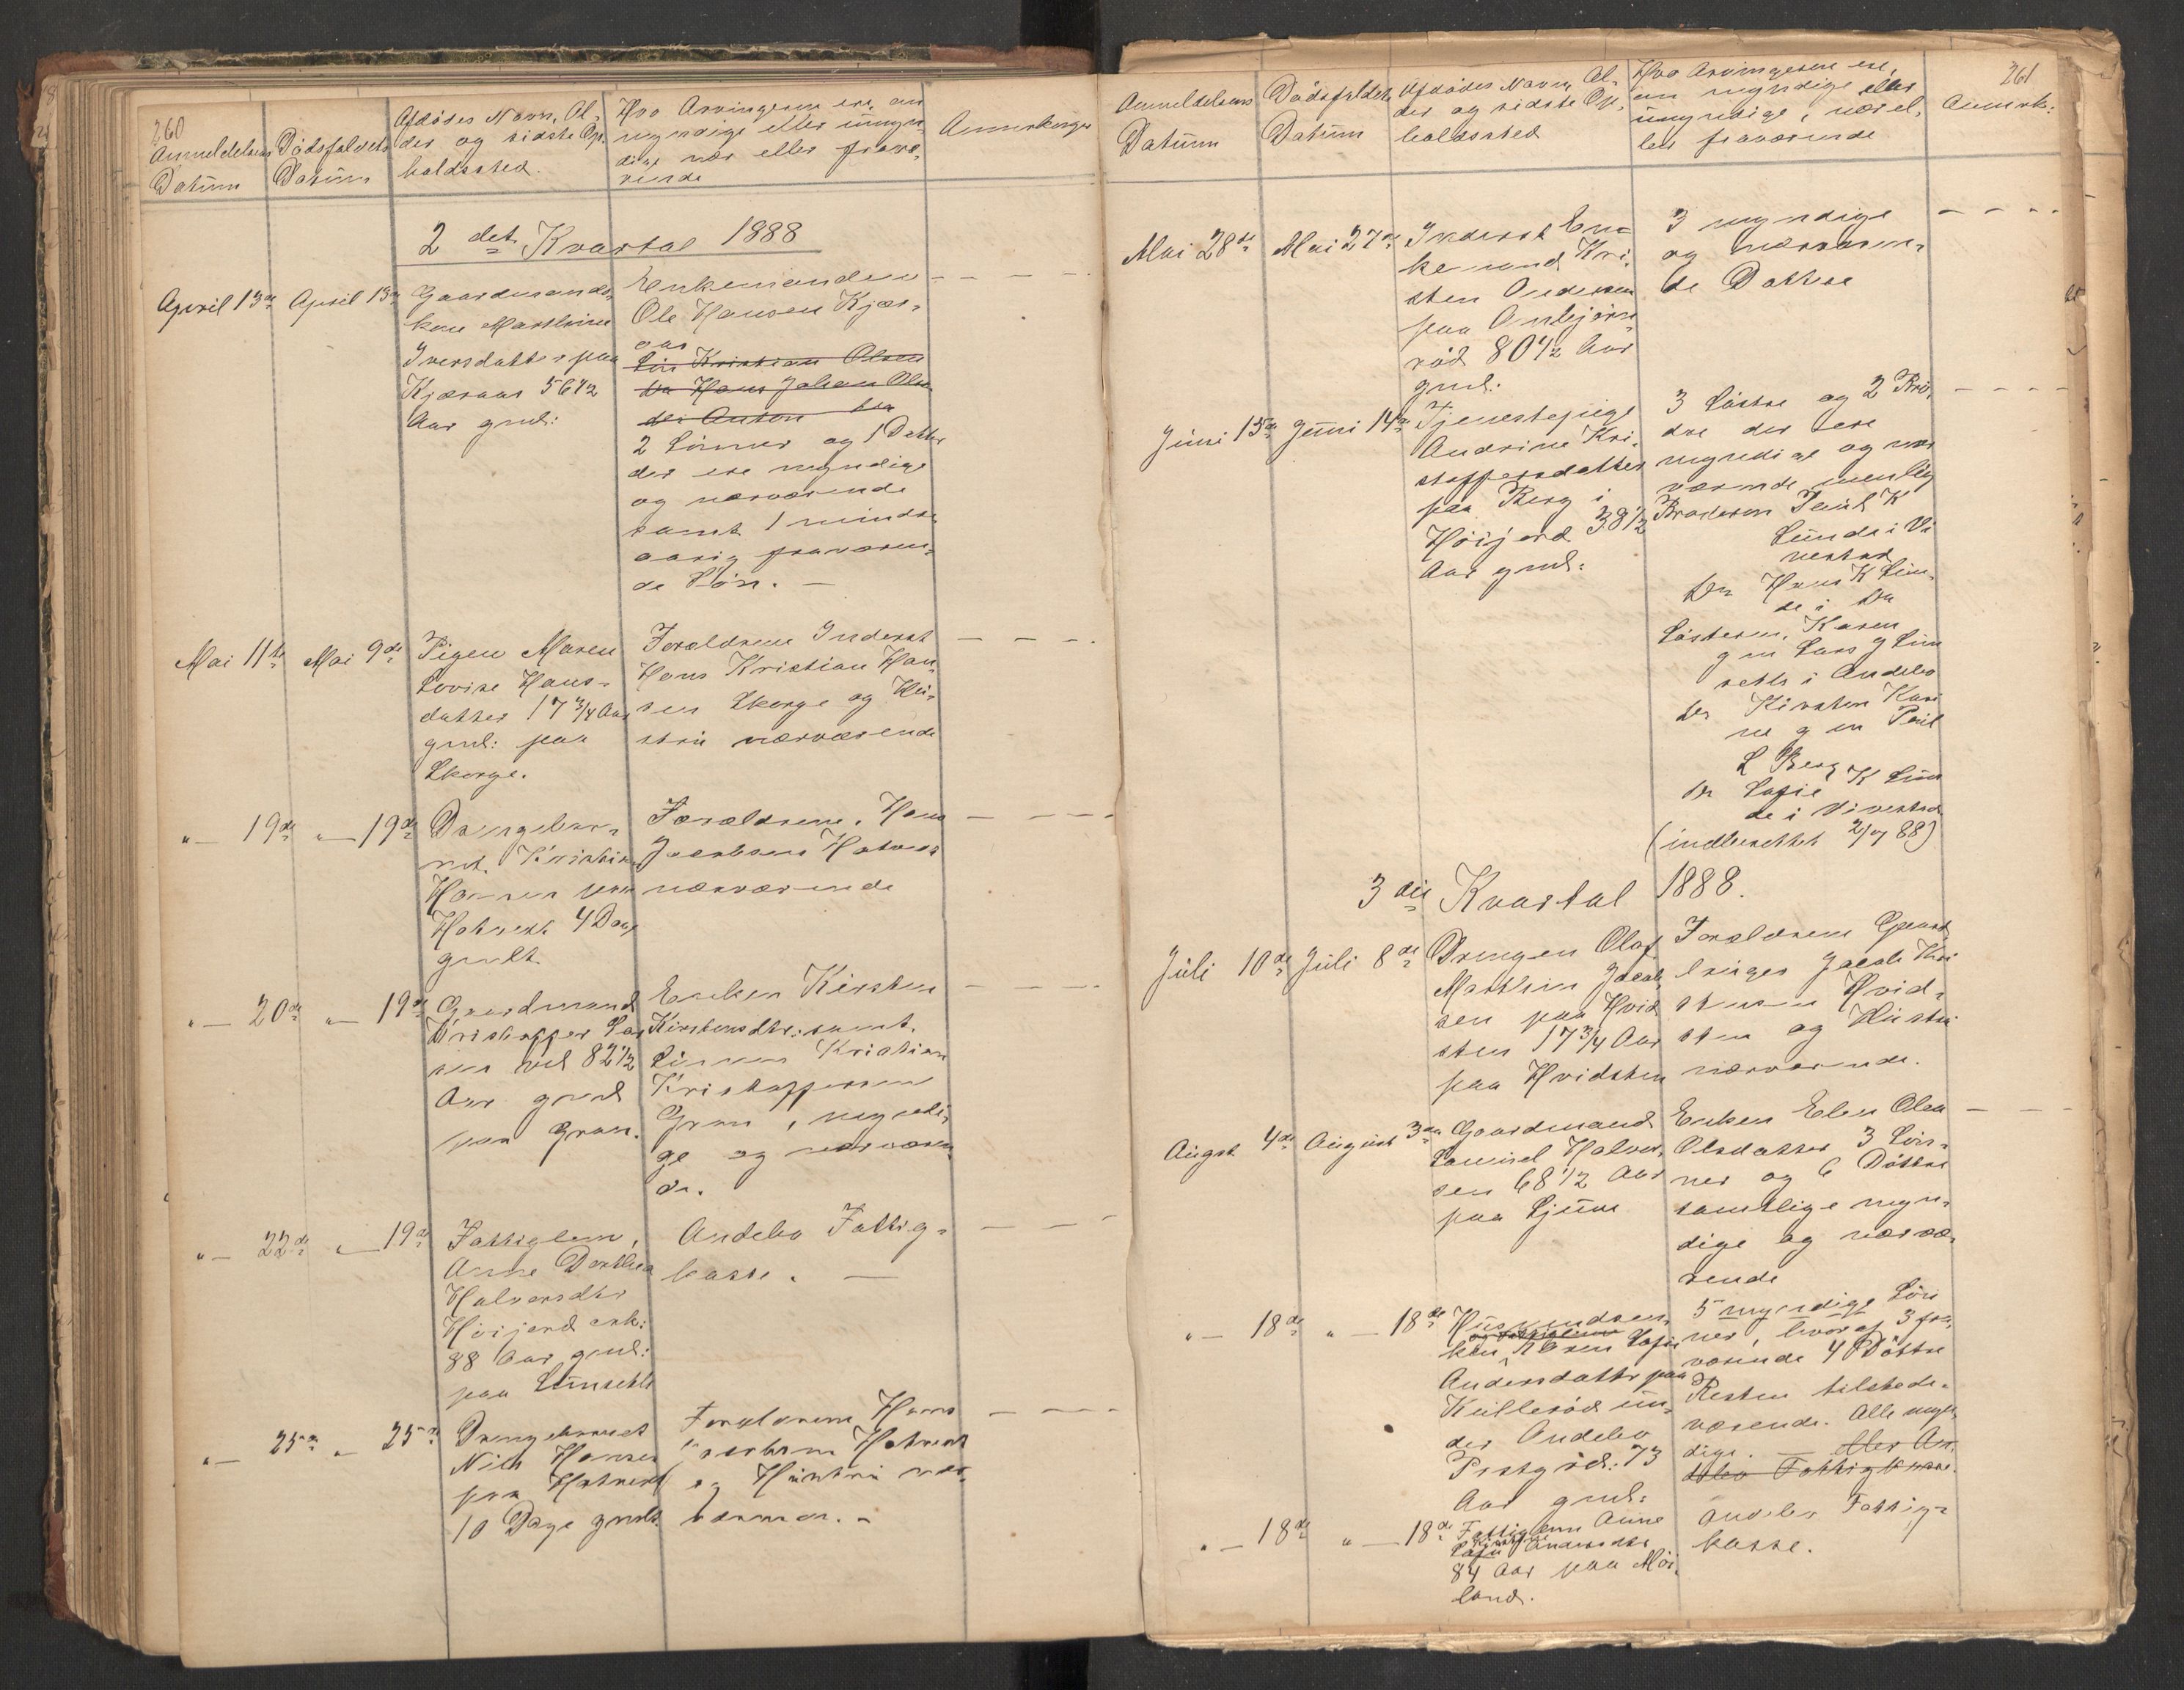 260
Anmeldelsens Datum
Dødsfaldets Datum
Afdødes Navn, Al-
der og sidste Op-
holdssted.
Hvo Arvingerne ere, om
myndige eller umyn-
dige nær eller fravæ-
rende
Anmerkninger
2det Kvartal 1888
April 13de
April 13de
Gaardmands-
kone Mathline
Iversdatter paa
Kjæraas 56 1/2
Aar gml:
Enkemanden
Ole Hansen Kjær-
aas
Søn Kristian Olsen
Do Hans Johan Olsen
do Anton Do
2 Sönner og 1 Datter
der ere myndige
og nærværende
samt 1 mindre-
aarig fraværen-
de Sön. —
Mai 11te
Mai 9de
Pigen Maren
Lovise Hans-
datter 17 3/4 Aar
gml: paa
Skorge.
Forældrene Inderst
Hans Kristian Han-
sen Skorge og Hu-
stru nærværende
"— 19de
"— 19de
Drengebar-
net Kristian
Hansen paa
Hotvedt 4 Dage
gmlt
Forældrene, Hans
Jacobsen Hotvedt
nærværende
"— 20de
"— 19de
Gaardmand
Kristoffer Lar-
sen ved 82 1/2
Aar gml
paa Gran.
Enken Kirsten
Kirstensdtr: samt
Sönnen Kristian
Kristoffersen
Gran, myndi-
ge og nærværen-
de.
"— 22de
"— 19de
Fattiglem,
Anne Dorthea
Halvorsdtr
Höijord enk:
88 Aar gml:
paa Sünsethr
Andebo Fattig-
kasse. —
"— 25de
"— 25de
Drengebarnet
Nils Hansen
paa Hotvedt
10 Dage gmlt.
Forældrene Hans
Jacobsen Hotvedt
og Hüstrü nær-
værende. —
261
Anmeldelsens
Datum
Dødsfaldets
Datum
Afdødes Navn, Al-
der og sidste Op-
holdssted
Hvo Arvingerne ere,
om myndige eller
umyndige, nær el-
ler fraværende
Anmerk:
Mai 28de
Mai 27de
Inderst En-
kemand Kri-
sten Andersen
paa Anbjörns-
röd 80 1/2 Aar
gml:
3 myndige
og nærværen-
de Döttre
Juni 15de
Juni 14de
Tjenestepige
Andrine Kri-
stoffersdatter
paa Berg i
Höijord 38 1/2
Aar gml:
3 Söstre og 2 Brö-
dre der ere
myndige og nær
værende nemlig
Broderen Paul K
Lunde i Vi
vestad
Do Hans K Lun-
de i Do
Söstern, Karen
g m Lars G Sün
seth i Andebo
Do Kirsten Kari
ne g m Paul
L Berg
Do Sofie K Lun
de i Vivestad
(indberettet 2/7 88)
3die Kvartal 1888.
Juli 10de
Juli 8de
Drengen Olaf
Mathias Jacob
sen paa Hvid
sten 17 3/4 Aar
paa Hvidsten
Forældrene Gaard
brüger Jacob Kri
stensen Hvid-
sten og Hüstrü
nærværende.
Augst 4de
August 3de
Gaardmand
Samuel Halvor-
sen 68 1/2 Aar
paa Sjüue
Enken Elen Olea
Olsdatter 3 Sön-
ner og 6 Döttre
samtlige myn-
dige og nærvæ-
rende
"— 18de
"— 18de
Husmandsen-
og Fattiglem
ken, Karen Sofie
Andersdatter paa
Kulleröd ün-
der Andebo
Prstgrd: 73
Aar gml:
5 myndige Sön
ner, hvoraf 3 fra-
værende 4 Döttre
Resten tilstede-
værende. Alle myn-
dige. — eller An-
debo Fattigkasse.
"— 18de
"— 18de
Fattiglem Anne
Sofie Andersdtr
84 Aar paa Möi-
land.
Andebo Fattig-
kasse.